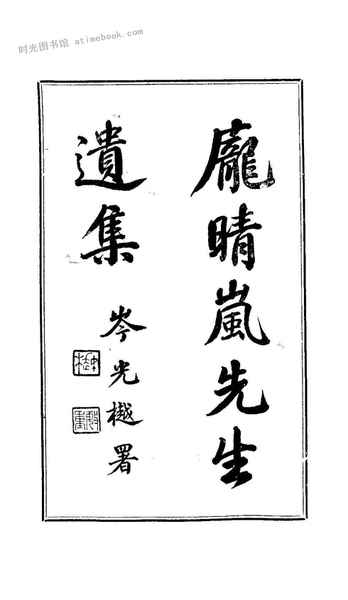 时光图书馆 atimebook.com
龐晴嵐先生
遺集
岑光樾署